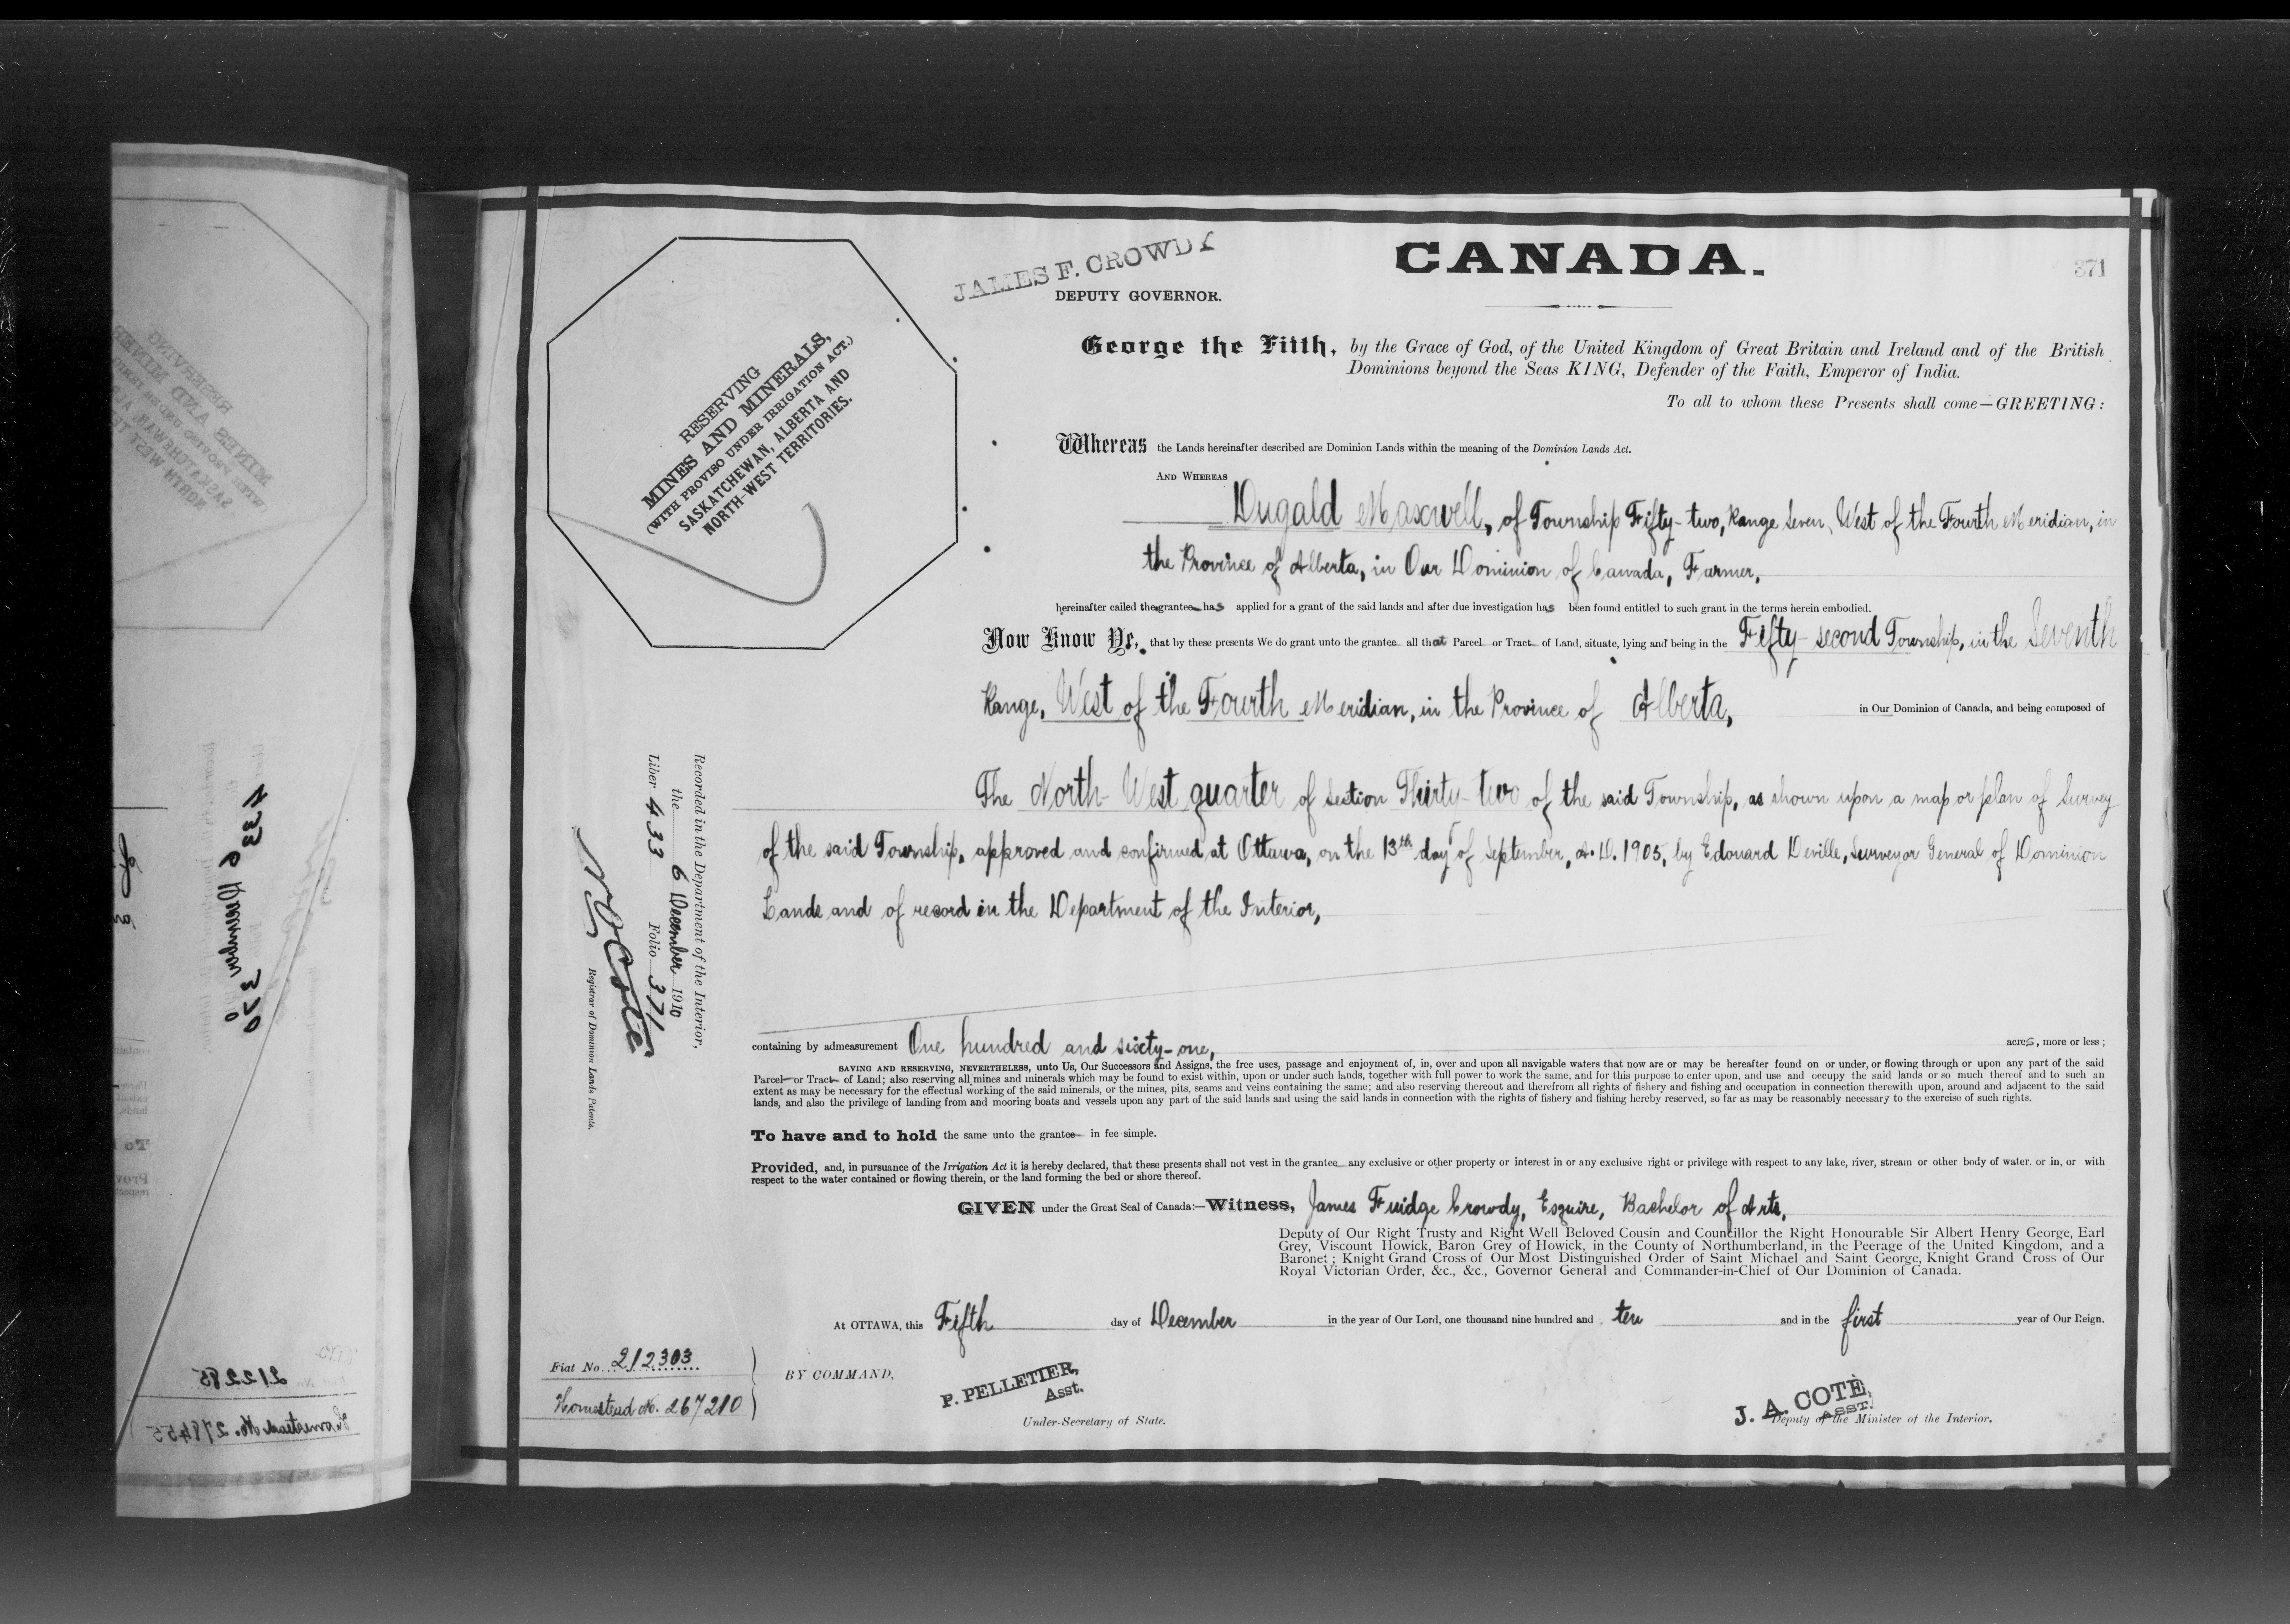 JAMES F. CROWDY
DEPUTY GOVERNOR.
CANADA.
371
RESERVING
MINES AND MINERALS,
(WITH PROVISO UNDER IRRIGATION ACT.)
SASKATCHEWAN, ALBERTA AND
NORTH-WEST TERRITORIES.
George the Fifth, by the Grace of God, of the United Kingdom of Great Britain and Ireland and of the British
Dominions beyond the Seas KING, Defender of the Faith, Emperor of India.
To all to whom these Presents shall come—GREETING:
Whereas the Lands hereinafter described are Dominion Lands within the meaning of the Dominion Lands Act.
AND WHEREAS
Dugald Maxwell, of Township Fifty-two, Range Seven, West of the Fourth Meridian, in
the Province of Alberta, in Our Dominion of Canada, Farmer,
hereinafter called the grantee has applied for a grant of the said lands and after due investigation has been found entitled to such grant in the terms herein embodied.
Now Know Ye, that by these presents We do grant unto the grantee all that Parcel or Tract of Land, situate, lying and being in the Fifty-second Township, in the Seventh
Range, West of the Fourth Meridian, in the Province of Alberta, in Our Dominion of Canada, and being composed of
The North-West quarter of Section Thirty-two of the said Township, as shown upon a map or plan of Survey
of the said Township, approved and confirmed at Ottawa, on the 13th day of September, A.D. 1905, by Edouard Deville, Surveyor General of Dominion
Lands and of record in the Department of the Interior,
containing by admeasurement One hundred and sixty-one, acres, more or less;
SAVING AND RESERVING, NEVERTHELESS, unto Us, Our Successors and Assigns, the free uses, passage and enjoyment of, in, over and upon all navigable waters that now are or may be hereafter found on or under, or flowing through or upon any part of the said
Parcel or Tract of Land; also reserving all mines and minerals which may be found to exist within, upon or under such lands, together with full power to work the same, and for this purpose to enter upon, and use and occupy the said lands or so much thereof and to such an
extent as may be necessary for the effectual working of the said minerals, or the mines, pits, seams and veins containing the same; and also reserving thereout and therefrom all rights of fishery and fishing and occupation in connection therewith upon, around and adjacent to the said
lands, and also the privilege of landing from and mooring boats and vessels upon any part of the said lands and using the said lands in connection with the rights of fishery and fishing hereby reserved, so far as may be reasonably necessary to the exercise of such rights.
To have and to hold the same unto the grantee in fee simple.
Provided, and, in pursuance of the Irrigation Act it is hereby declared, that these presents shall not vest in the grantee any exclusive or other property or interest in or any exclusive right or privilege with respect to any lake, river, stream or other body of water, or in, or with
respect to the water contained or flowing therein, or the land forming the bed or shore thereof.
GIVEN under the Great Seal of Canada:—Witness, James Fuidge Crowdy, Esquire, Bachelor of Arts,
Deputy of Our Right Trusty and Right Well Beloved Cousin and Councillor the Right Honourable Sir Albert Henry George, Earl
Grey, Viscount Howick, Baron Grey of Howick, in the County of Northumberland, in the Peerage of the United Kingdom, and a
Baronet; Knight Grand Cross of Our Most Distinguished Order of Saint Michael and Saint George, Knight Grand Cross of Our
Royal Victorian Order, &c., &c., Governor General and Commander-in-Chief of Our Dominion of Canada.
At OTTAWA, this Fifth day of December in the year of Our Lord, one thousand nine hundred and ten and in the first year of Our Reign.
Recorded in the Department of the Interior,
the 6 December 1910
Liber 433 Folio 371
N O Coté
Registrar of Dominion Lands Patents.
Fiat No. 212303
Homestead No. 267210
BY COMMAND,
P. PELLETIER,
Asst.
Under-Secretary of State.
J. A. COTÉ,
ASST.
Deputy of the Minister of the Interior.
433 6 December 370
212285
Homestead No. 278455